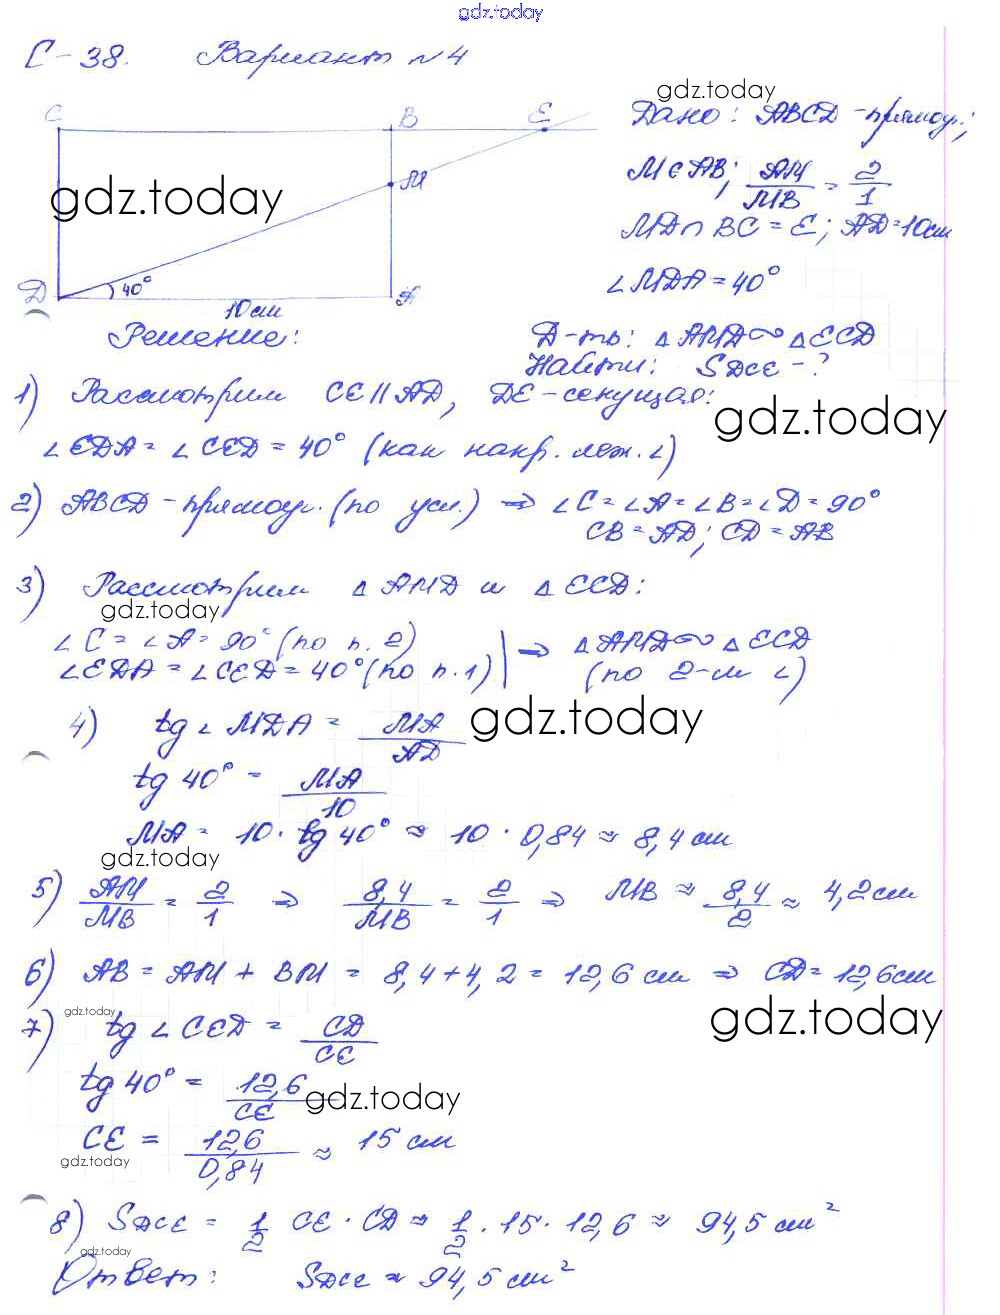 gdz.today
С-38. Вариант №4
gdz.today
C B E
Дано: ABCD - прямоуг.;
M∈AB; AM/MB = 2/1
gdz.today
M
MD∩BC = E; AD=10см
∠MDA = 40°
D 40° A
10 см
Решение:
Д-ть: △AMD∾△ECD
Найти: SDCE - ?
1) Рассмотрим CE||AD, DE - секущая:
gdz.today
∠EDA = ∠CED = 40° (как накр. леж. ∠)
2) ABCD - прямоуг. (по усл.) ⇒ ∠C = ∠A = ∠B = ∠D = 90°
CB = AD; CD = AB
3) Рассмотрим △AMD и △ECD:
gdz.today
∠C = ∠A = 90° (по п. 2)
∠EDA = ∠CED = 40° (по п. 1) | ⇒ △AMD∾△ECD
(по 2-м ∠)
4) tg∠MDA = MA/AD
gdz.today
tg 40° = MA/10
MA = 10 · tg 40° ≈ 10 · 0,84 ≈ 8,4 см
gdz.today
5) AM/MB = 2/1 ⇒ 8,4/MB = 2/1 ⇒ MB ≈ 8,4/2 ≈ 4,2 см
6) AB = AM + BM = 8,4 + 4,2 = 12,6 см ⇒ CD = 12,6 см
gdz.today
gdz.today
7) tg∠CED = CD/CE
tg 40° = 12,6/CE
gdz.today
CE = 12,6/0,84 ≈ 15 см
gdz.today
8) SDCE = 1/2 CE · CD ≈ 1/2 · 15 · 12,6 ≈ 94,5 см²
gdz.today
Ответ: SDCE ≈ 94,5 см²